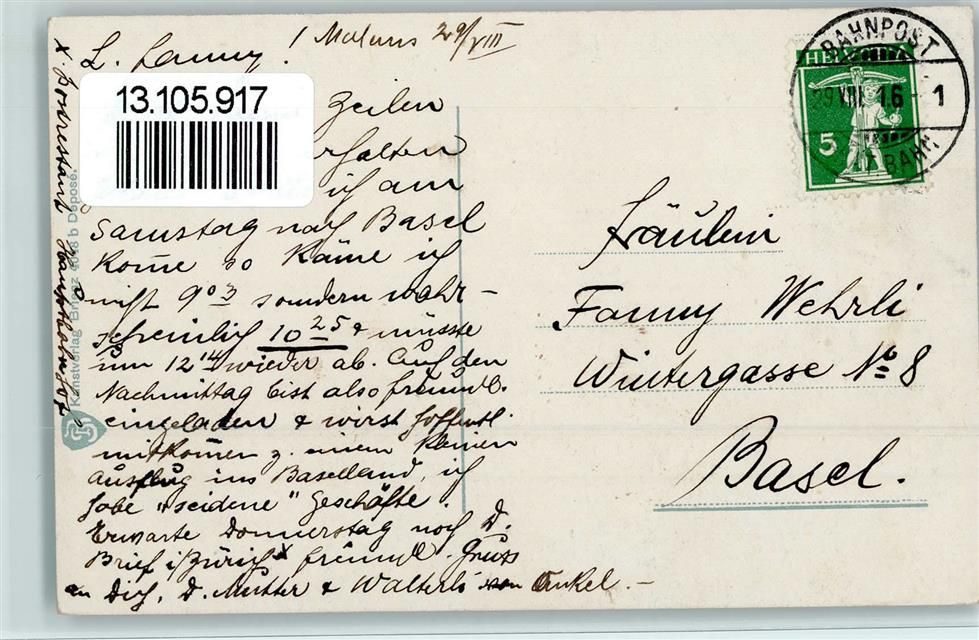 L. Fanny! / Maluns 29/VIII
13.105.917
Zeilen
erhalten
ich am
Samstag nach Basel
kome so käme ich
nicht 9 03 sondern wahr-
scheinlich 10 25 & müsste
um 12 14 wieder ab. Auf den
Nachmittag bist also freundl.
eingeladen & wirst hoffentl.
mitkomen z. einem kleinen
Ausflug ins Baselland, ich
habe "seidene" Geschäfte.
Erwarte Donnerstag noch D.
Brief i/Zürich x freundl. Gruss
an Dich, D. Mutter & Walterli von Onkel.—
x. postrestant Hauptbahnhof
Kunstverlag Brienz 4048 b Deposé.
BAHNPOST
29 VIII 16 - 1
HELVETIA
5
Fräulein
Fanny Wehrli
Wintergasse No 8
Basel.